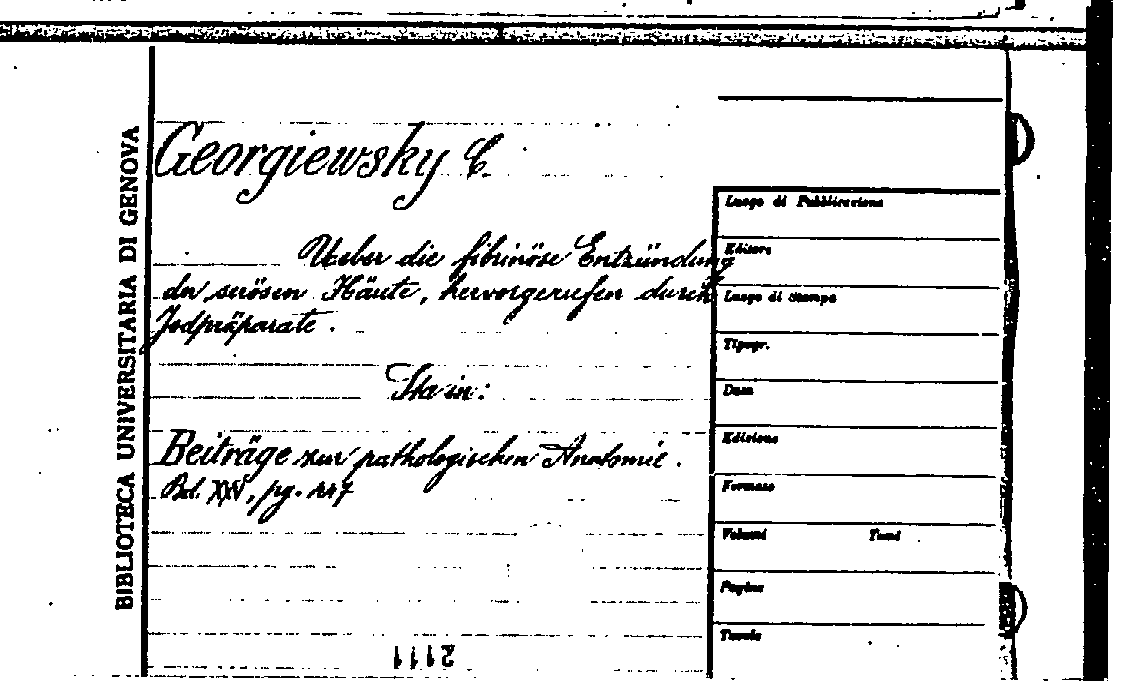 BIBLIOTECA UNIVERSITARIA DI GENOVA
Georgiewsky C.
Ueber die fibrinöse Entzündung
der serösen Häute, hervorgerufen durch
Jodpräparate.
Sta in:
Beiträge zur pathologischen Anatomie.
Bd. XXV, pg.
Luogo di Pubblicazione
Editore
Luogo di Stampa
Tipogr.
Data
Edizione
Formato
Volumi Tomi
Pagine
Tavole
2111